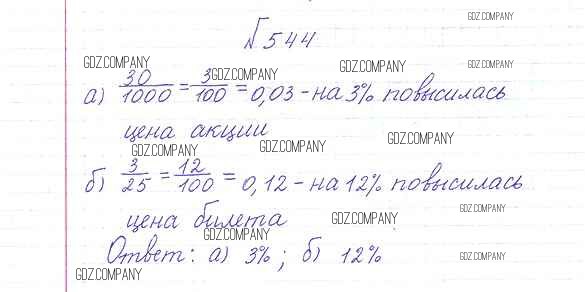 GDZ.COMPANY
№ 544
GDZ.COMPANY GDZ.COMPANY GDZ.COMPANY GDZ.COMPANY
а) 30/1000 = 3/100 = 0,03 - на 3% повысилась
цена акции
GDZ.COMPANY GDZ.COMPANY GDZ.COMPANY
б) 3/25 = 12/100 = 0,12 - на 12% повысилась
цена билета
GDZ.COMPANY GDZ.COMPANY
GDZ.COMPANY
Ответ: а) 3% ; б) 12%
GDZ.COMPANY
GDZ.COMPANY